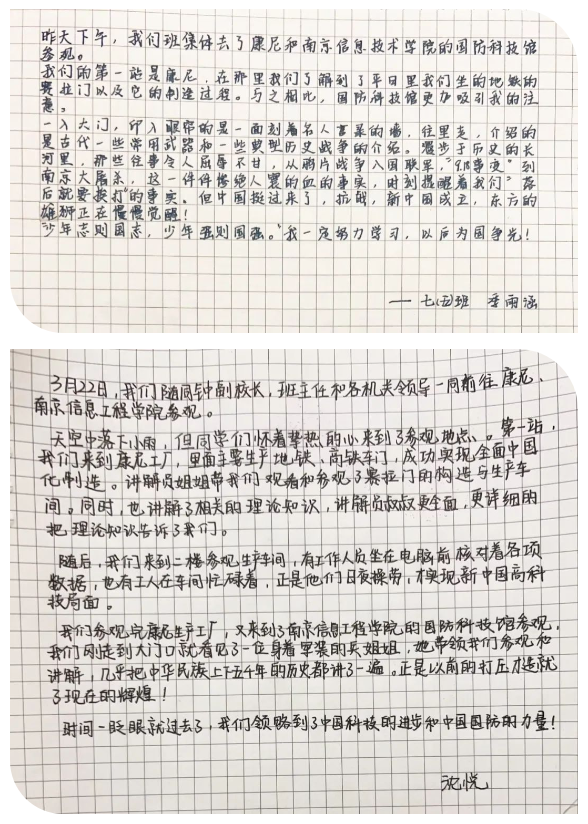 昨天下午，我们班集体去了康尼和南京信息技术学院的国防科技馆
参观。
我们的第一站是康尼，在那里我们了解到了平日里我们坐的地铁的
赛拉门以及它的制造过程。与之相比，国防科技馆更加吸引我的注
意。
一入大门，印入眼帘的是一面刻着名人言录的墙，往里走，介绍的
是古代一些常用武器和一些典型历史战争的介绍。漫步于历史的长
河里，那些往事令人屈辱不甘，从鸦片战争八国联军，"事变"到
南京大屠杀，这一件件惨绝人寰的血的事实，时刻提醒着我们"落
后就要挨打"的事实。但中国挺过来了，抗战，新中国成立，东方的
雄狮正在慢慢觉醒！
"少年志则国志，少年强则国强。"我一定努力学习，以后为国争光！
—— 七(五)班 季雨涵
3月22日，我们随同钟副校长，班主任和各机关领导一同前往康尼、
南京信息工程学院参观。
天空中落下小雨，但同学们怀着挚热的心来到了参观地点。第一站，
我们来到康尼工厂，里面主要生产地铁、高铁车门，成功实现全面中国
化制造。讲解员姐姐带我们观看和参观了赛拉门的构造与生产车
间。同时，也讲解了相关的理论知识，讲解员叔叔更全面，更详细的
把理论知识告诉了我们。
随后，我们来到二楼参观生产车间，有工作人员坐在电脑前核对着各项
数据，也有工人在车间忙碌着，正是他们日夜操劳，才实现新中国高科
技局面。
我们参观完康尼生产工厂，又来到了南京信息工程学院的国防科技馆参观，
我们刚走到大门口就看见了一位身着军装的兵姐姐，她带领我们参观和
讲解，几乎把中华民族上下五千年的历史都讲了一遍。正是以前的打压才造就
了现在的辉煌！
时间一眨眼就过去了，我们领略到了中国科技的进步和中国国防的力量！
沈悦